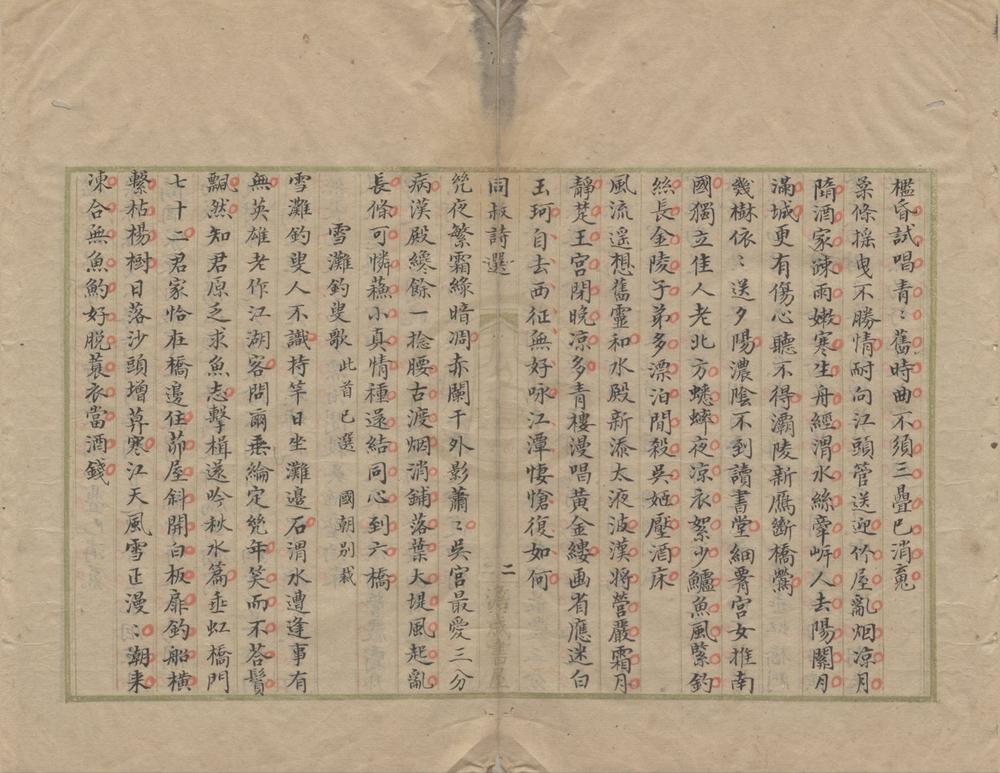 檻昏試唱青〻舊時曲不須三疊已消䰟
桒條搖曳不勝情耐向江頭管送迎似屋亂烟凉月
隋酒家疎雨嫩寒生舟經渭水絲牽岍人去陽關月
滿城更有傷心聽不得灞陵新鴈斷橋鶯
幾樹依〻送夕陽濃陰不到讀書堂細霄宮女推南
國獨立佳人老北方蟋蟀夜凉衣絮少鱸魚風緊釣
絲長金陵子弟多漂泊閒殺吳姬壓酒床
風流遥想舊靈和水殿新添太液波漢將營嚴霜月
靜楚王宮閉晚凉多青樓漫唱黃金縷画省應迷白
玉珂自去西征無好咏江潭悽愴復如何
同叔詩選
二
澹成書屋
幾夜繁霜綠暗凋赤闌干外影蕭〻吳宮最愛三分
病漢殿纔餘一捻腰古渡烟消鋪落葉大堤風起亂
長條可憐蘓小真情種還結同心到六橋
雪灘釣叟歌 此首已選 國朝別裁
雪灘釣叟人不識持竿日坐灘邊石渭水遭逢事有
無英雄老作江湖客問爾垂綸定幾年笑而不答鬢
飄然知君原乏求魚志擊楫遂吟秋水篇垂虹橋門
七十二君家恰在橋邊住茆屋斜開白板扉釣船橫
繫枯楊樹日落沙頭增莽寒江天風雪正漫〻潮来
凍合無魚魡好脫蓑衣當酒錢